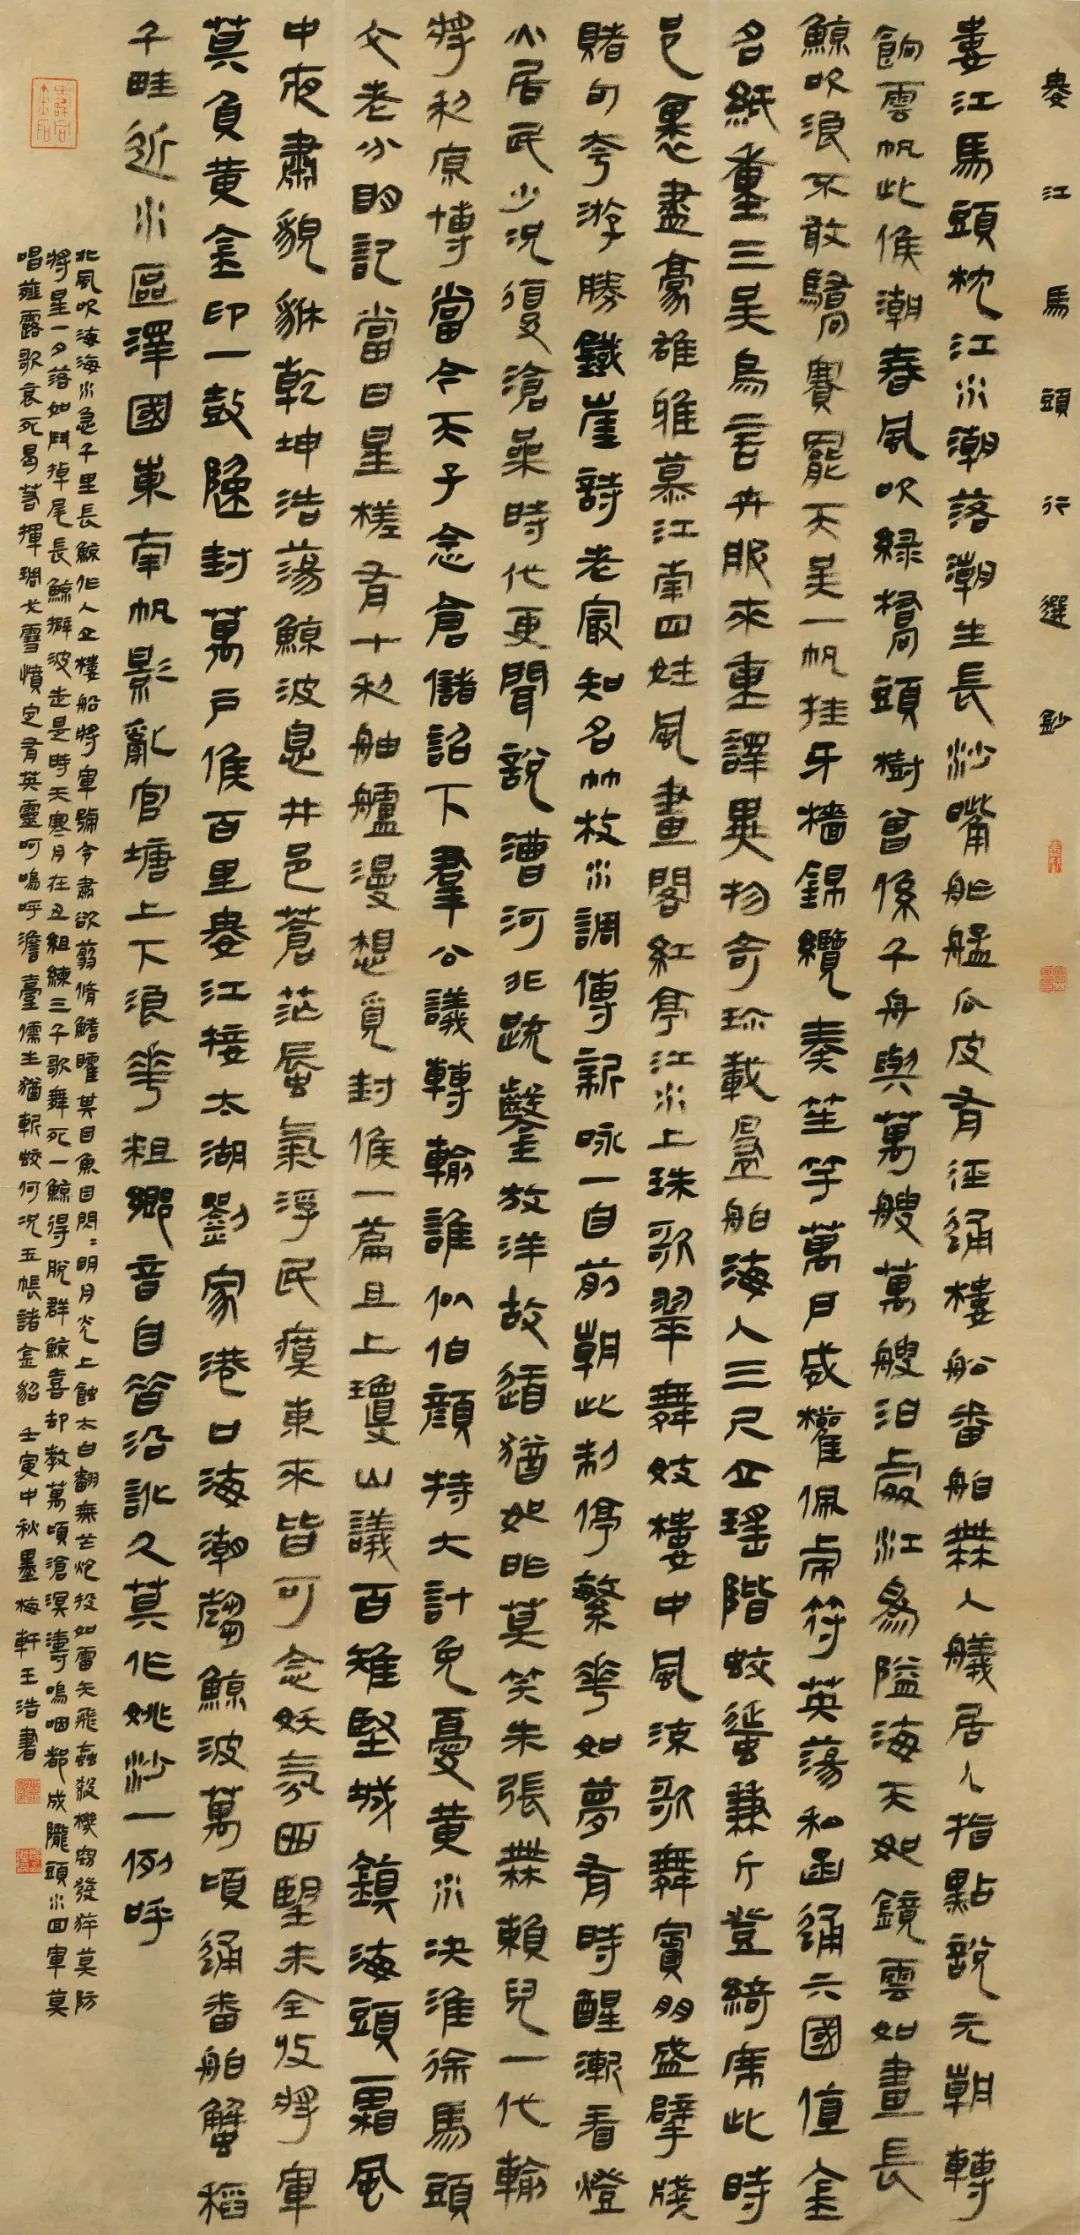 婁江馬頭行選鈔
婁江馬頭枕江水潮落潮生長沙嘴舴艋瓜皮有徑通樓船番舶無人艤居人指點說元朝轉
餉雲帆此候潮春風吹綠橋頭樹曾係千舟與萬艘萬艘泊處江為隘海天如鏡雲如畫長
鯨吹浪不敢驕賽罷天吴一帆挂牙檣錦纜奏笙竽萬戶威權佩虎符英蕩和函通六國值金
名紙重三吴鳥言卉服來重譯異物奇珍載海舶海人三尺立瑤階蛟蜑兼斤登綺席此時
邑裏盡豪雄雅慕江南四姓風畫閣紅亭江水上珠歌翠舞妓樓中風涼歌舞賓朋盛擘牋
賭句夸游勝鐵崖詩老最知名竹枝水調傳新咏一自前朝此制停繁華如夢有時醒漸看燈
火居民少況復滄桑時代更聞說漕河北疏鑿放洋故道猶如昨莫笑朱張無賴兒一代輸
將利原博當今天子念倉儲詔下羣公議轉輸誰似伯顏持大計免憂黃水決淮徐馬頭
父老分明記當日星槎有十利舳艫漫想覓封侯一篇且上瓊山議百雉堅城鎮海頭霜風
中夜肅貌貅乾坤浩蕩鯨波息井邑蒼茫蜃氣浮民瘼東來皆可念妖氛西望未全收將軍
莫負黃金印一鼓隨封萬戶侯百里婁江接太湖劉家港口海潮趨鯨波萬頃通番舶蟹稻
千畦近水區澤國東南帆影亂官塘上下浪華粗鄉音自昔沿訛久莫作姚沙一例呼
北風吹海海水急千里長鯨作人立樓船將軍號令肅欲剪脩鰭矐其目魚目閃閃明月光上蝕太白翻無芒炮投如雷矢飛蝱殺機竊發猝莫防
將星一夕落如斗掉尾長鯨擗波走是時天寒月在丑組練三千歌舞死一鯨得脫群鯨喜却教萬頃滄溟濤嗚咽都成隴頭水回軍莫
唱薤露歌哀死曷若揮琱戈雪憤定有英靈呵嗚呼澹臺儒生猶斬蛟何況五帳諸金貂 壬寅中秋墨梅軒王浩書